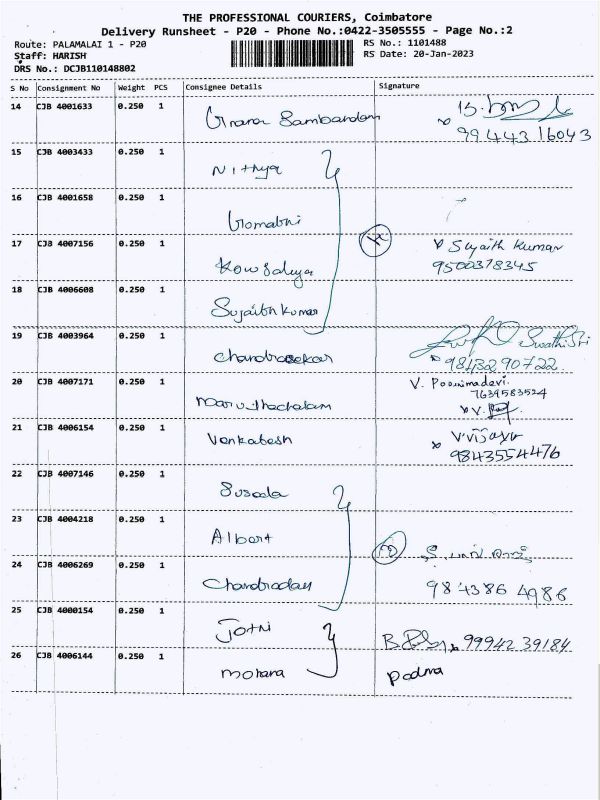 THE PROFESSIONAL COURIERS, Coimbatore
Delivery Runsheet - P20 - Phone No.:0422-3505555 - Page No.:2
Route: PALAMALAI 1 - P20
RS No.: 1101488
Staff: HARISH
RS Date: 20-Jan-2023
DRS No.: DCJB110148802
S No Consignment No Weight PCS Consignee Details Signature
14 CJB 4001633 0.250 1 Gnana Sambandam
9944316043
15 CJB 4003433 0.250 1 Nithya
16 CJB 4001658 0.250 1 Gomathi
17 CJB 4007156 0.250 1 Kowsalya Sujith Kumar
9500378345
18 CJB 4006608 0.250 1 Sujaith Kumar
19 CJB 4003964 0.250 1 Chandrasekar Swathi Sri
9843290722
20 CJB 4007171 0.250 1 Maruthachalam V. Poornimadevi.
7639583524
21 CJB 4006154 0.250 1 Venkatesh V Vijaya
9843554476
22 CJB 4007146 0.250 1 Suseela
23 CJB 4004218 0.250 1 Albert
24 CJB 4006269 0.250 1 Chandradass
984386 4986
25 CJB 4000154 0.250 1 Jothi 99942 39184
26 CJB 4006144 0.250 1 Mohana Padma